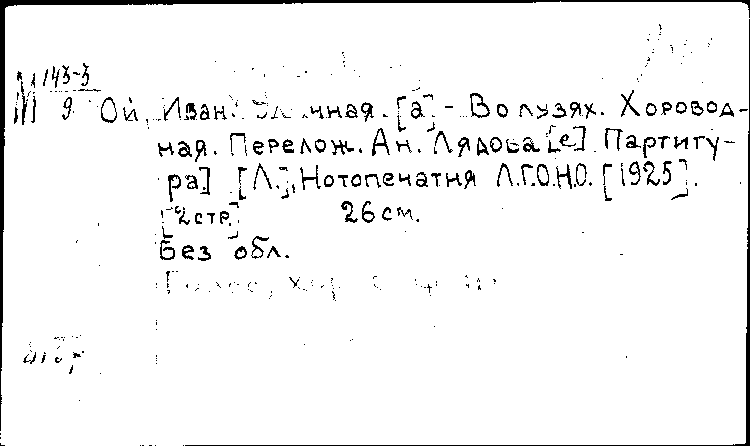 М 143-3
9
Ой, Иван. Уличная. [а] - Во лузях. Хоровод-
ная. Перелож. Ан. Лядова [e] Партиту-
ра] [Л.], Нотопечатня Л.Г.О.Н.О. [1925].
[2 стр.] 26 см.
Без обл.